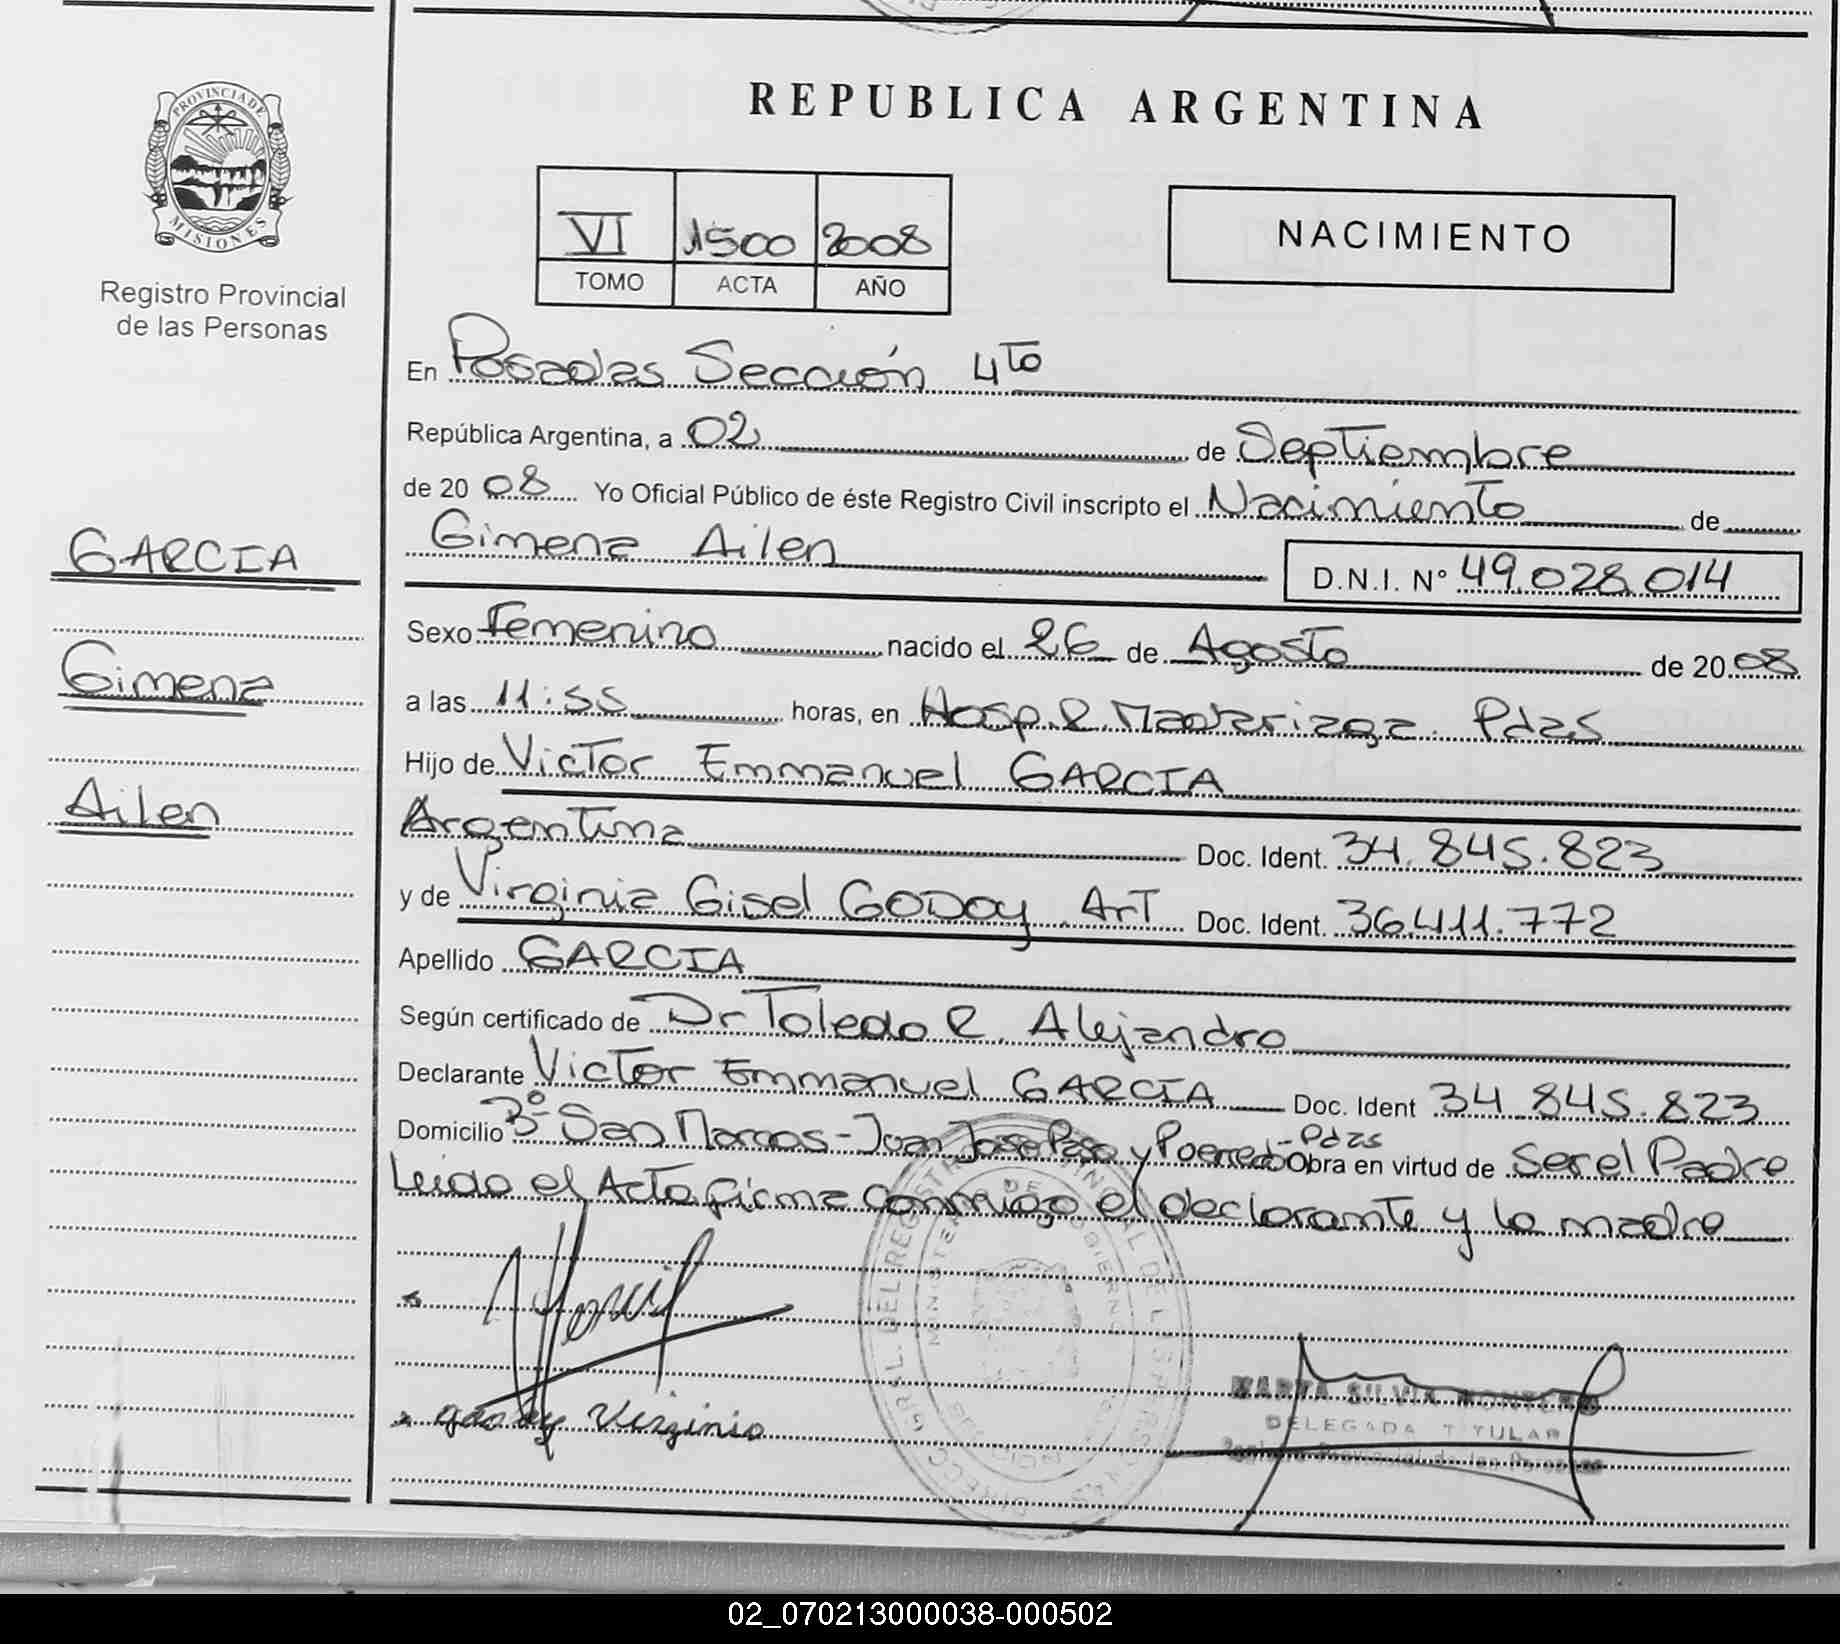 PROVINCIA DE
MISIONES
Registro Provincial
de las Personas
GARCIA
Gimena
Ailen
REPUBLICA ARGENTINA
VI 1500 2008
TOMO ACTA AÑO
NACIMIENTO
En Posadas Sección 4to
República Argentina, a 02 de Septiembre
de 20 08 Yo Oficial Público de éste Registro Civil inscripto el Nacimiento de
Gimena Ailen D.N.I. N° 49.028.014
Sexo Femenino nacido el 26 de Agosto de 20 08
a las 11:55 horas, en Hosp. R. Madariaga. Pdas
Hijo de Victor Emmanuel GARCIA
Argentina Doc. Ident. 34.845.823
y de Virginia Gisel GODOY. Art Doc. Ident. 36.411.772
Apellido GARCIA
Según certificado de Dr Toledo R. Alejandro
Declarante Victor Emmanuel GARCIA Doc. Ident 34.845.823
Domicilio Bº San Marcos - Juan Jose Paso y - Pdas Obra en virtud de Ser el Padre
Leido el Acta firma conmigo el declarante y la madre
godoy Virginia
MARTA SILVIA MONTERO
DELEGADA TITULAR
Registro Provincial de las Personas
02_070213000038-000502